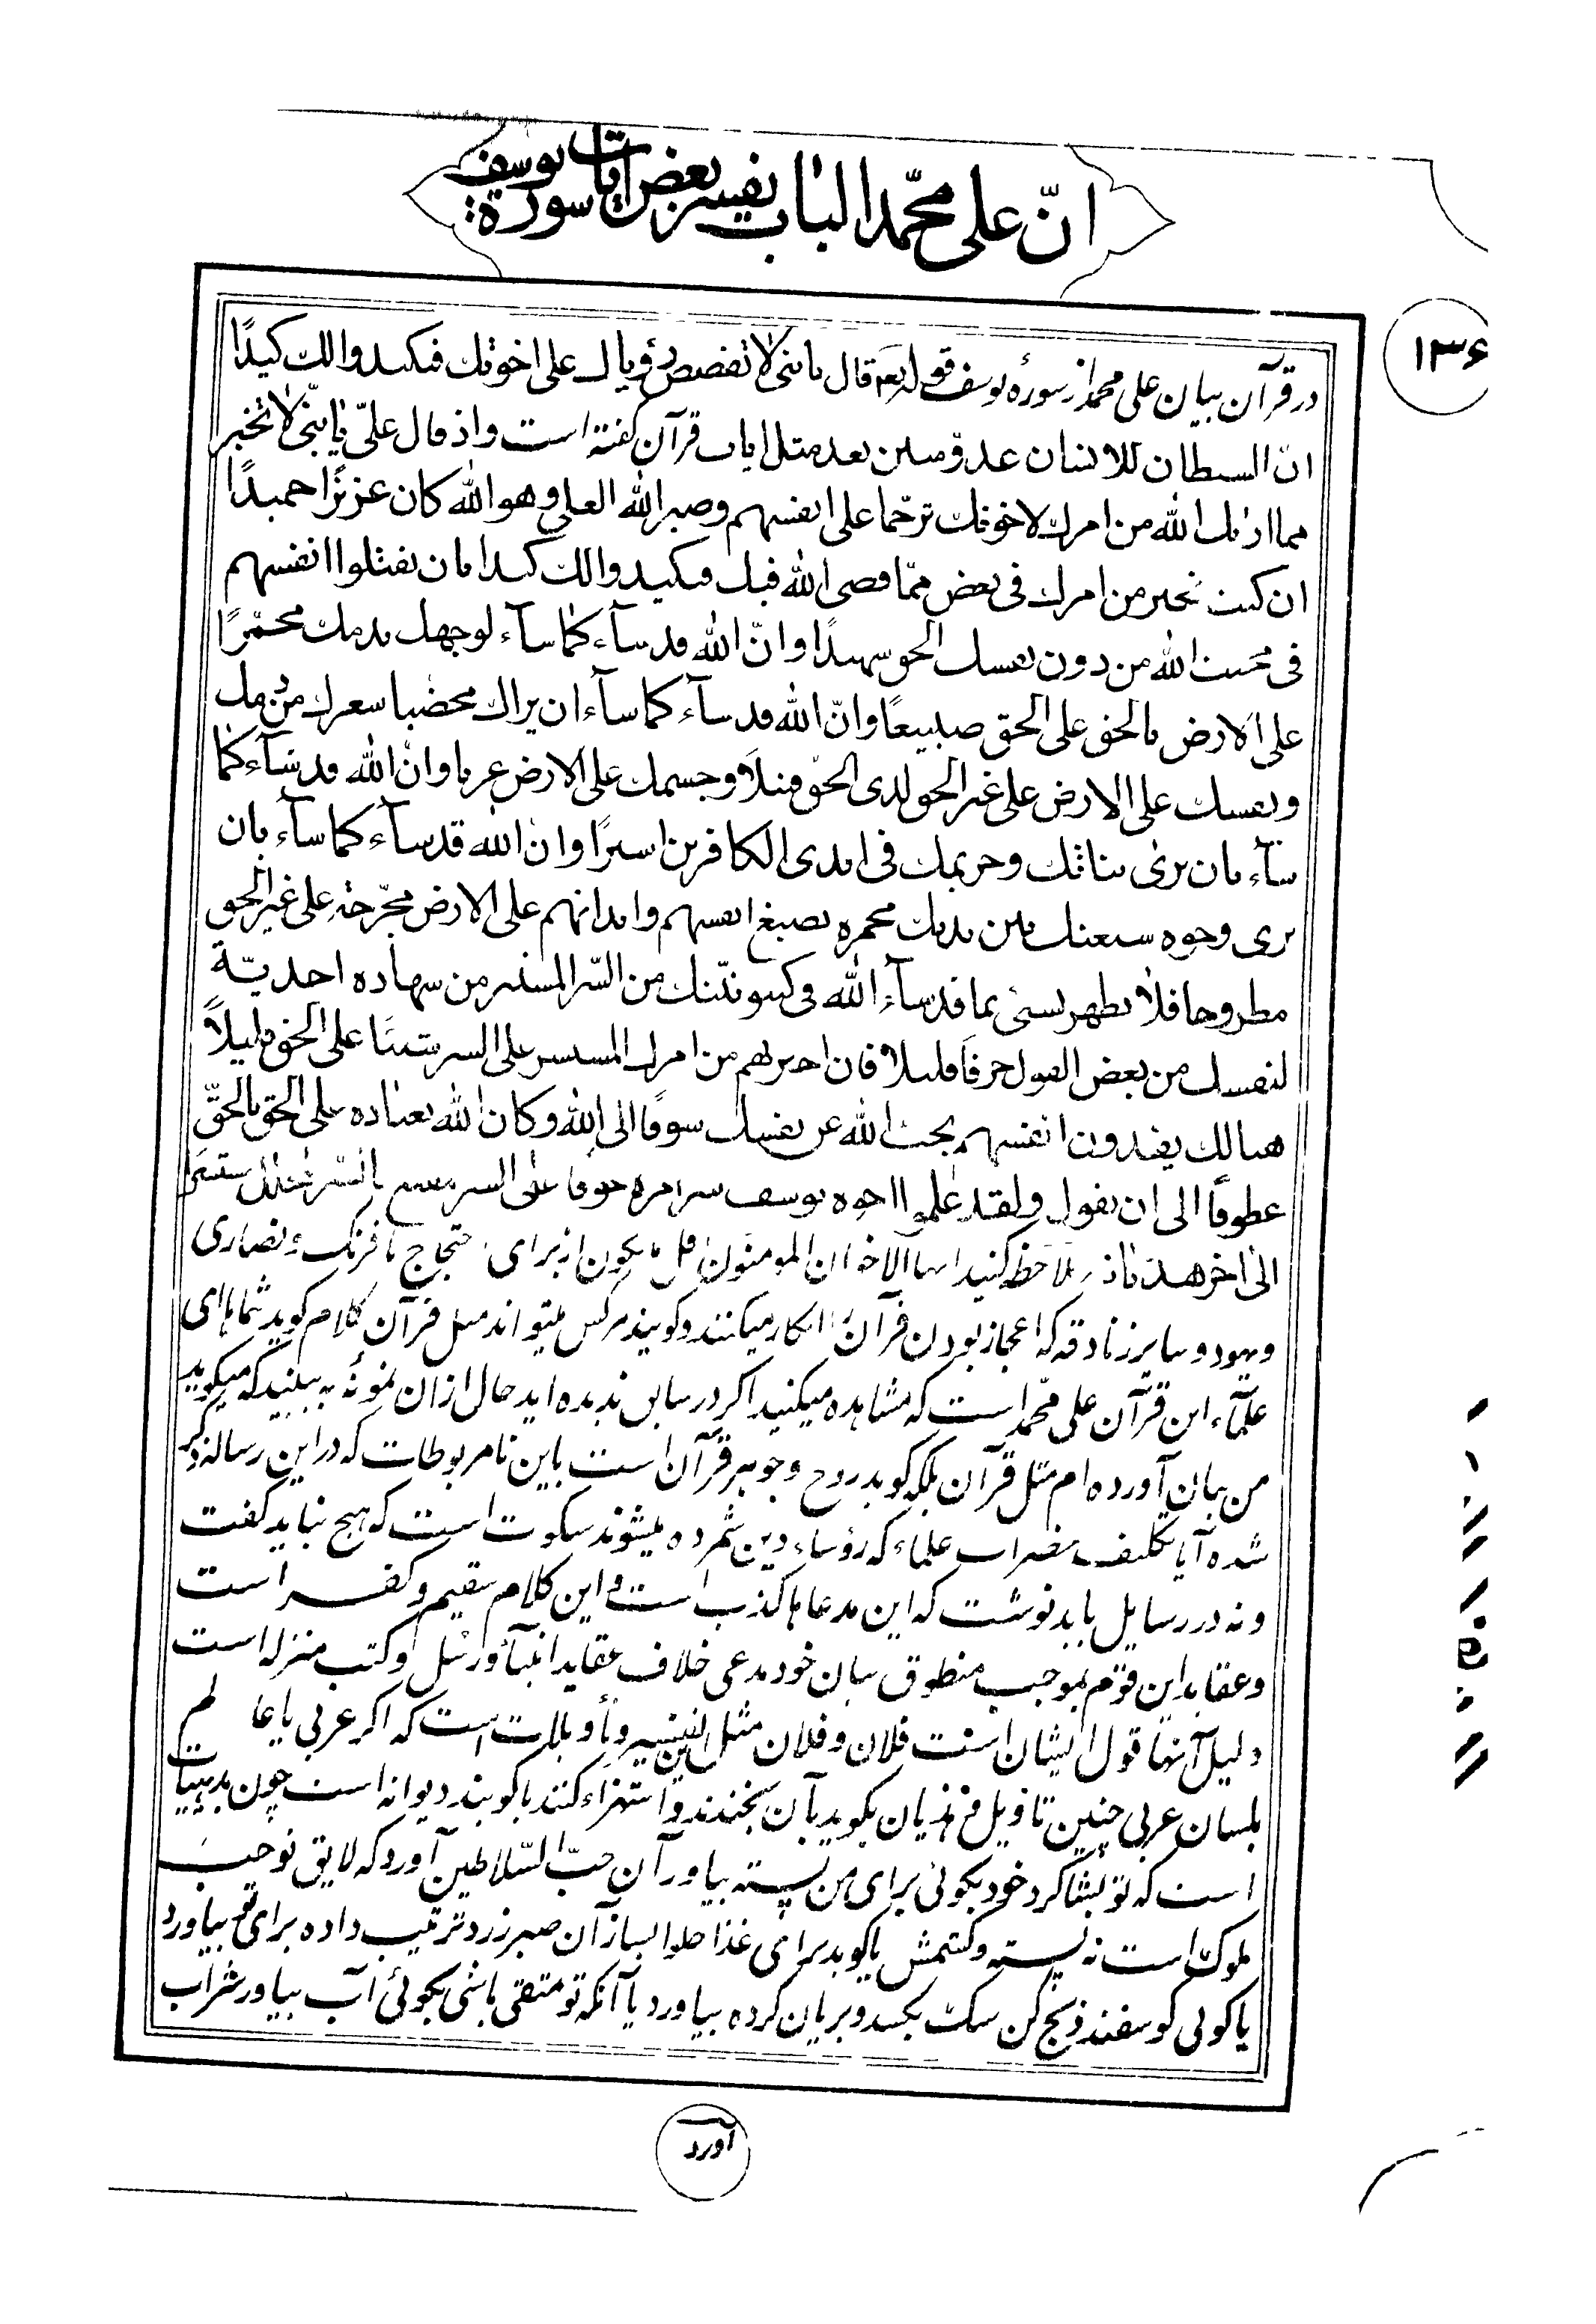 انّ علی محمّد الباب تفسیر بعض آیات سورة یوسف
۱۳۶
در قرآن بیان علی محمد از سورهٔ یوسف قوله تعم قال یا بنی لا تقصص رؤیاك علی اخوتك فیکیدوا لك کیدًا
انّ الشیطان للانسان عدوّ مبین بعد مثل ایات قرآن گفته است واذ قال علیّ یا بنّی لا تخبر
مما اراك الله من امرك لاخوتك ترحّما علی انفسهم وصبر الله العلی وهو الله کان عزیزًا حمیدًا
ان کنت تخبر من امرك فی بعض ممّا قضی الله فیك فیکیدوا لك کیدا بان یقتلوا انفسهم
فی محبت الله من دون نفسك الحق شهیدًا وانّ الله قد شآء کما شآء لوجهك بدمك محمّرًا
علی الارض بالحق علی الحق صبیغًا وانّ الله قد شآء کما شآء ان یراك مخضبا شعرك من دمك
ونفسك علی الارض علی غیر الحق لدی الحقّ قتیلًا وجسمك علی الارض عریا وان الله قد شآء کما
شآء بان یری بناتك وحریمك فی ایدی الکافرین اسیرًا وان الله قد شآء کما شآء بان
یری وجوه شیعتك بین یدیك محمره بصبغ انفسهم وابدانهم علی الارض مجّرحة علی غیر الحق
مطروحا فلا تظهر بشیئ بما قد شآء الله فی کینونتك من السّر المستتر من شهاده احدیّة
لنفسك من بعض القول حرفًا قلیلا فان اخبرتهم من امرك المستسر علی السر شیئًا علی الحق قلیلًا
هنالك یفدون انفسهم بحبّ الله عن نفسك شوقًا الی الله وکان الله بعباده علی الحق بالحقّ
عطوفًا الی ان یقول ولقد علموا اخوه یوسف من امره حرفًا علی السر
الی اخر ملاحظه کنید ایها الاخوان المومنون از برای احتجاج با فرنگ و نصاری
ویهود و سایر زنادقه که اعجاز بودن قرآن را انکار میکنند و گویند هر کس میتواند مثل قرآن کلام گوید شماها ای
علمآء این قرآن علی محّمد است که مشاهده میکنید اگر در سابق ندیده اید حال از ان نمونهٔ به بینید که میگوید
من بیان آورده ام مثل قرآن بلکه گوید روح و جوهر قرآن است باین نامربوطات که در این رساله ذکر
شده آیا تکلیف حضرات علماء که رؤساء دین شمرده میشوند سکوت است که هیچ نباید گفت
و نه در رسایل باید نوشت که این مدعاها کذب است و این کلام سقیم و کفر است
و عقاید این قوم بموجب منطوق بیان خود مدعی خلاف عقاید انبیآء و رسل و کتب منزله است
دلیل آنها قول ایشان است فلان و فلان مثل این تفسیر و تأویلات است که اگر عربی یا عالم
بلسان عربی چنین تاویل و هذیان بگوید بآن بخندند و استهزاء کنند یا گویند دیوانه است چون بدیهیات
است که تو بشاگرد خود بگوئی برای من پسته بیاور آن حبّ السّلاطین آورد که لایق تو حب
ملوك است نه پسته و کشمش یا گوید برای غذا حلوا بساز آن صبر زرد ترتیب داده برای تو بیاورد
یا گوئی گوسفند ذبح کن سگ بکشد و بریان کرده بیاورد یا آنکه تو متقی باشی بگوئی آب بیاور شراب
آورد